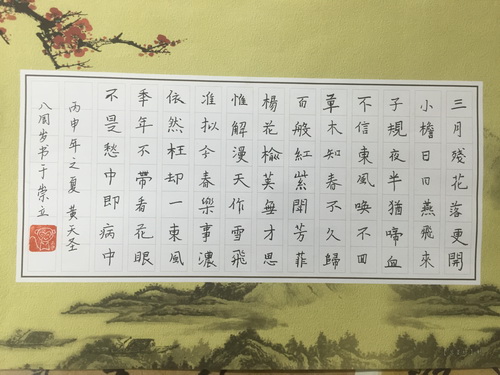 三月殘花落更開
小檐日日燕飛來
子規夜半猶啼血
不信東風喚不回
草木知春不久歸
百般紅紫閗芳菲
楊花榆莢無才思
惟解漫天作雪飛
准拟今春樂事濃
依然枉却一東風
秊年不帶看花眼
不是愁中即病中
丙申年之夏 黄天圣
八周岁书于崇立